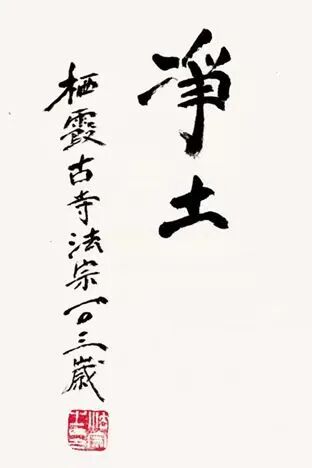 净土
栖霞古寺法宗一〇三歲